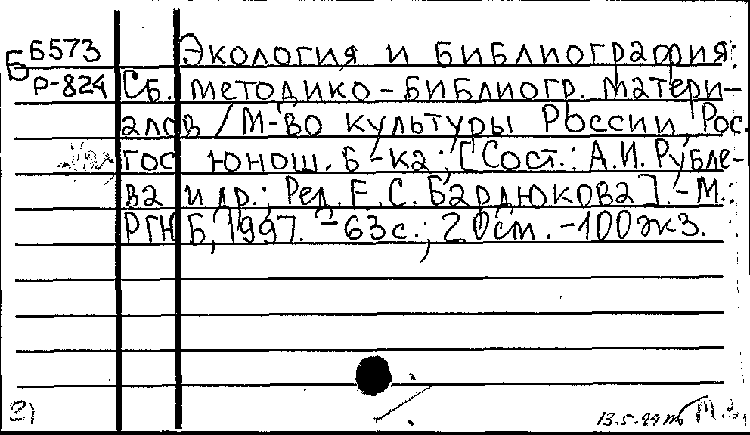 Б 6573 Экология и библиография:
Р-824 Сб. методико-библиогр. матери-
алов / М-во культуры России, Рос.
гос юнош. б-ка; [Сост.: А.И. Рубле-
ва и др.; Ред. Е.С. Бардюкова]. - М.:
РГЮБ, 1997. - 63 с.; 20 см. - 100 экз.